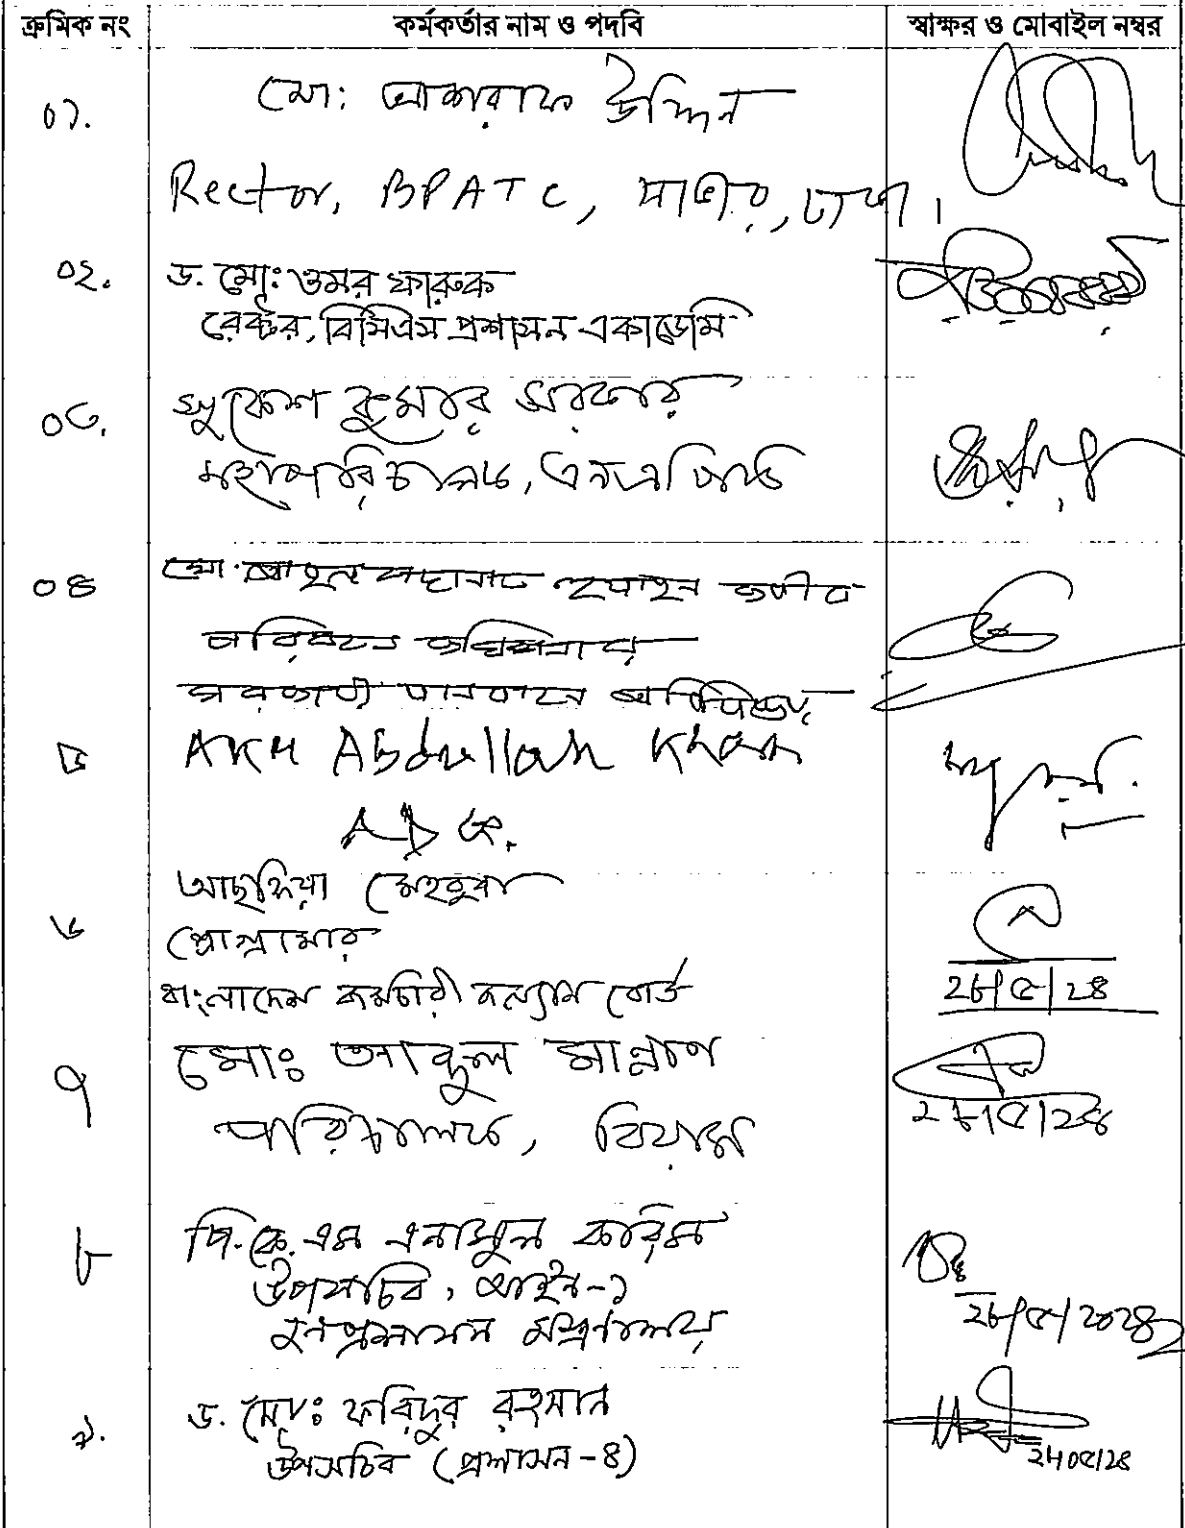 ক্রমিক নং কর্মকর্তার নাম ও পদবি স্বাক্ষর ও মোবাইল নম্বর
০১. মো: আশরাফ উদ্দিন
Rector, BPATC, সাভার, ঢাকা।
০২. ড. মো: ওমর ফারুক
রেক্টর, বিসিএস প্রশাসন একাডেমি
০৩. সুকেশ কুমার সরকার
মহাপরিচালক, এনএপিডি
০৪ মো.
পরিবহন কমিশনার
সরকারী যানবাহন অধিদপ্তর
৫ AKM Abdullah Khan
ADG.
৬ আছফিয়া মেহবুবা
প্রোগ্রামার
বাংলাদেশ কর্মচারী কল্যাণ বোর্ড
২৮/৫/২৪
৭ মোঃ আব্দুল মান্নান
পরিচালক, বিয়াম
২৮/৫/২৪
৮ পি.কে.এম এনামুল করিম
উপসচিব, আইন-১
জনপ্রশাসন মন্ত্রণালয়
২৮/৫/২০২৪
৯. ড. মোঃ ফরিদুর রহমান
উপসচিব (প্রশাসন-৪)